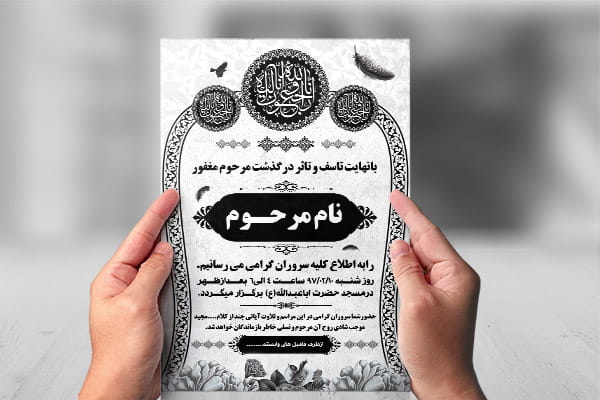 انا لله و انا الیه راجعون
با نهایت تاسف و تاثر در گذشت مرحوم مغفور
نام مرحـــوم
را به اطلاع کلیه سروران گرامی می رسانیم.
روز شنبه ۹۷/۰۲/۱۰ ساعت ٤ الی٦ بعدازظهر
در مسجد حضرت اباعبدالله(ع) برگزار میگردد.
حضور شما سروران گرامی در این مراسم و تلاوت آیاتی چند از کلام.....مجید
موجب شادی روح آن مرحوم و تسلی خاطر بازماندگان خواهد شد.
ازطرف فامیل های وابسته.........